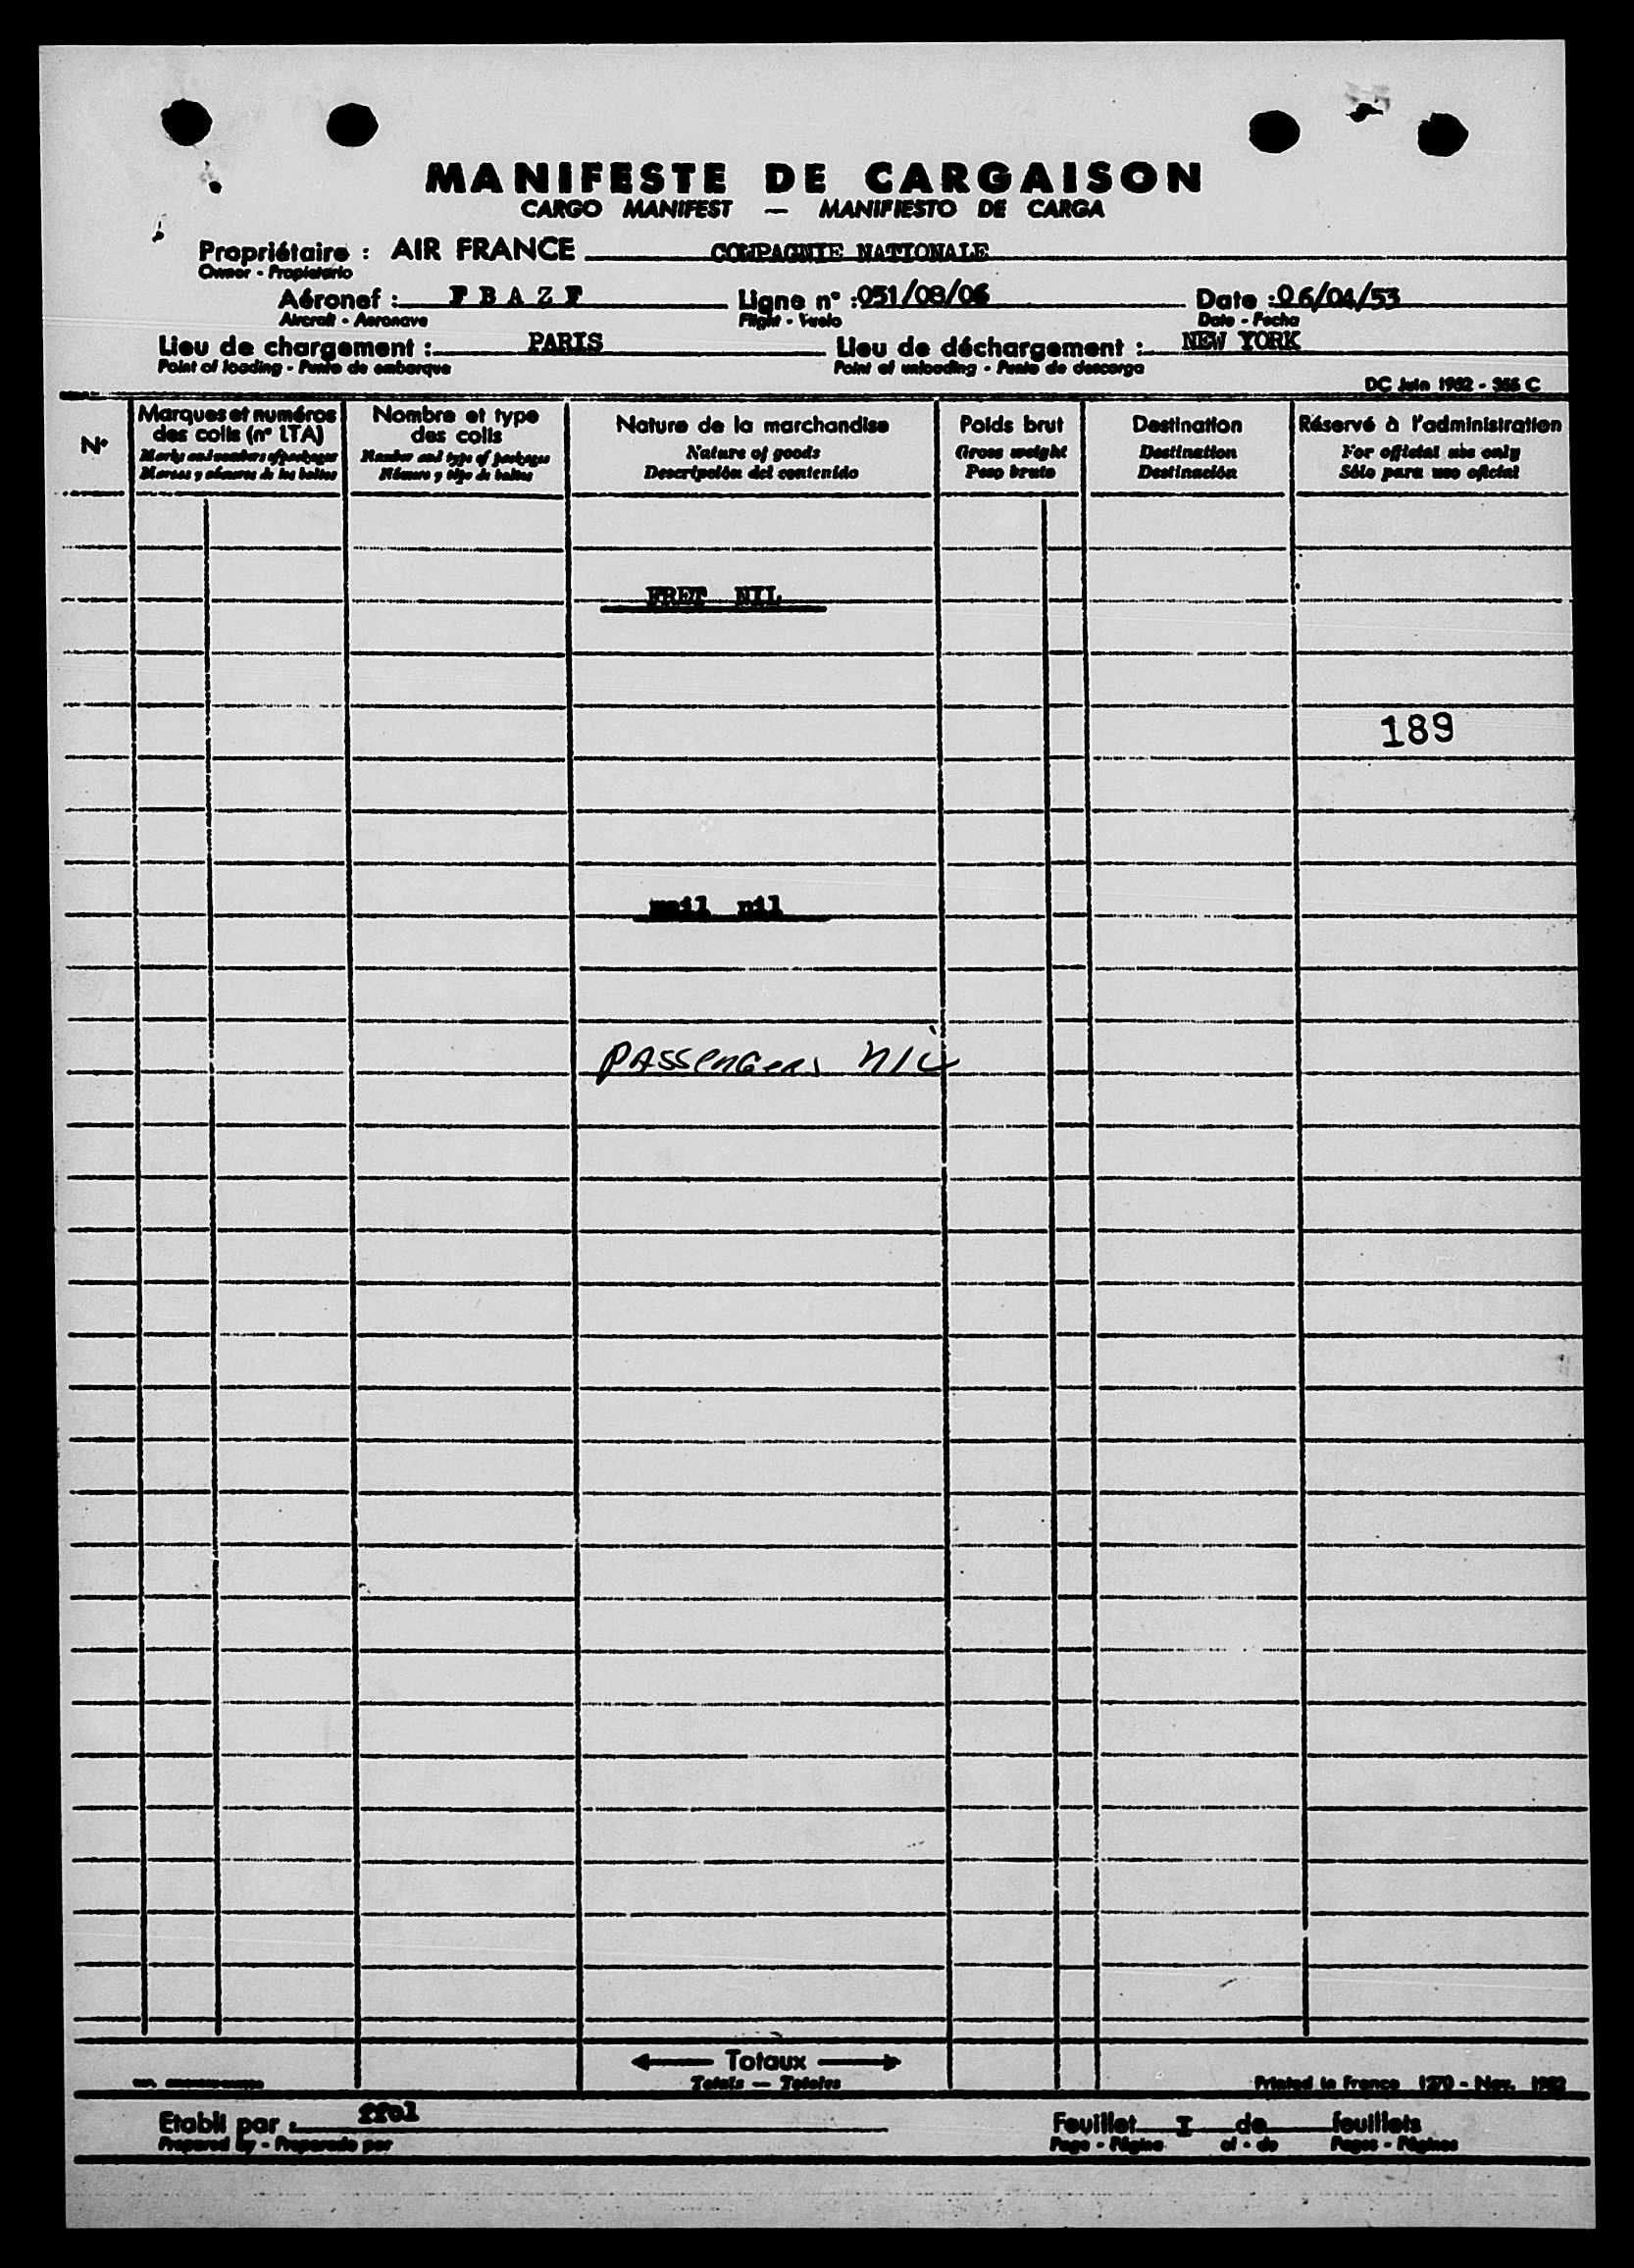 MANIFESTE DE CARGAISON
CARGO MANIFEST — MANIFIESTO DE CARGA
Propriétaire : AIR FRANCE COMPAGNIE NATIONALE
Owner - Propietario
Aéronef : F B A Z F Ligne n° : 051/08/06 Date : 06/04/53
Aircraft - Aeronave Flight - Vuelo Date - Fecha
Lieu de chargement : PARIS Lieu de déchargement : NEW YORK
Point of loading - Punto de embarque Point of unloading - Punto de descarga
DC Juin 1952 - 356 C
N° Marques et numéros des colis (n° LTA) Nombre et type des colis Nature de la marchandise Poids brut Destination Réservé à l'administration
Marks and numbers of packages Number and type of packages Nature of goods Gross weight Destination For official use only
Marcas y números de los bultos Número y tipo de bultos Descripción del contenido Peso bruto Destinación Sólo para uso oficial
FRET NIL
189
mail nil
PASSENGERS NIL
Totaux
Totals — Totales
Printed in France 1270 - Nov. 1952
Etabli par :
Prepared by - Preparado por
Feuillet I de feuillets
Page - Página of - de Pages - Páginas